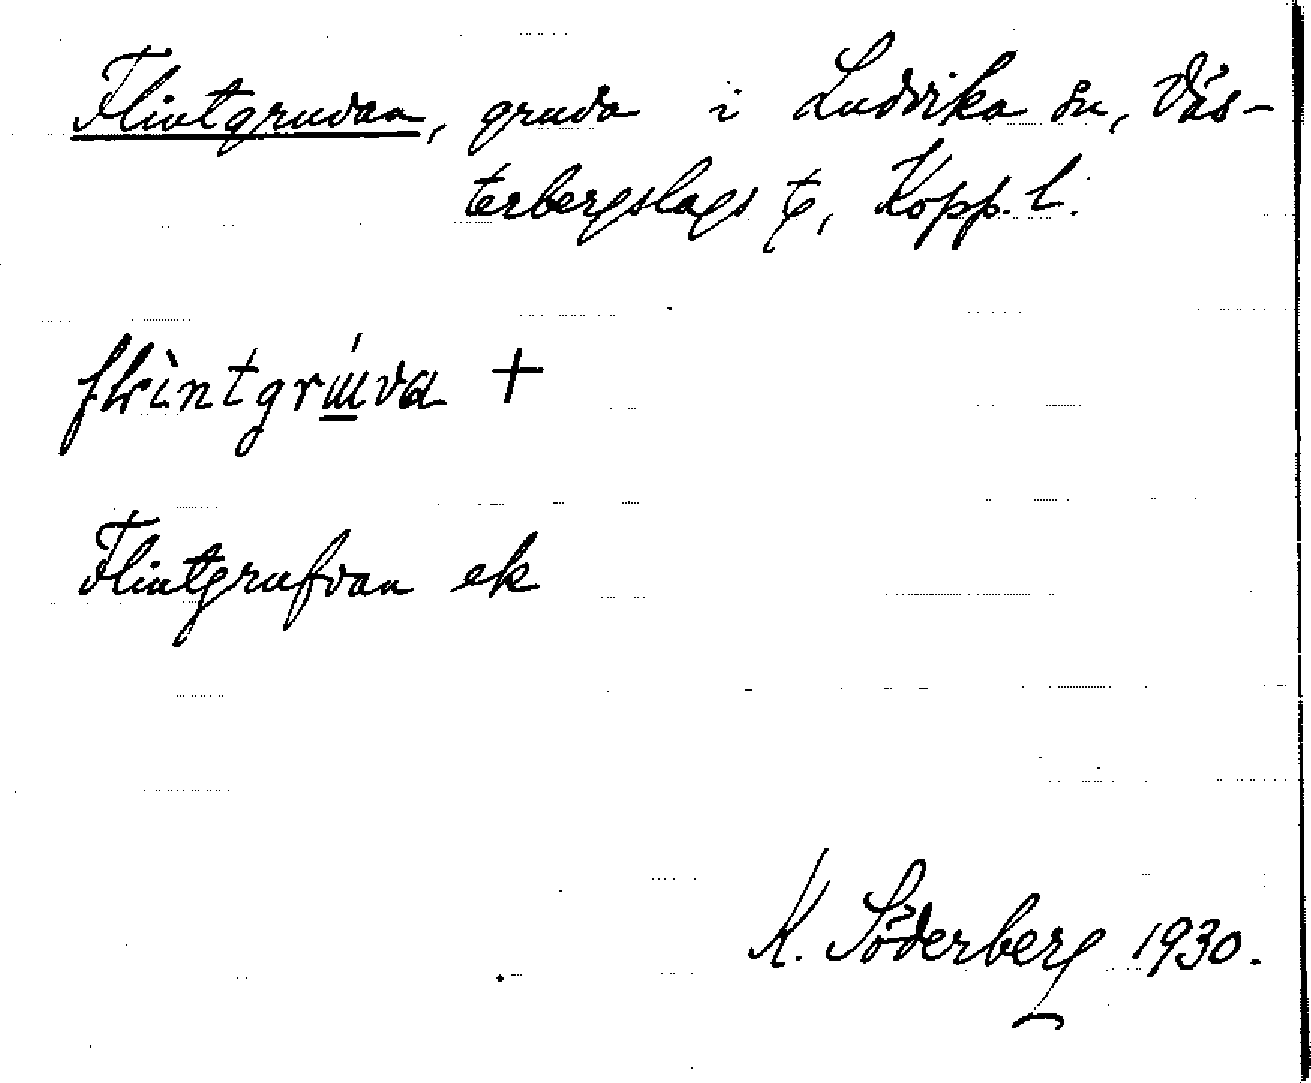 Flintgruvan, gruva i Ludvika sn, Väs-
terbergslags tg, Kopp. l.
flìntgrɯ́va +
Flintgrufvan ek
K. Söderberg 1930.